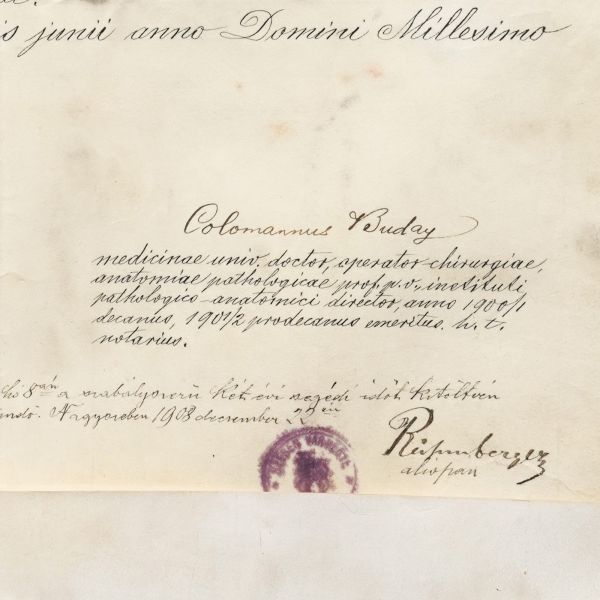 s junii anno Domini Millesimo
Colomannus Buday
medicinae univ. doctor, operator chirurgiae,
anatomiae pathologicae prof. p. o., instituti
pathologico-anatomici director, anno 1900/1
decanus, 1901/2 prodecanus emeritus. h. t.
notarius.
hó 8ván a szabályszerü két évi segédi időt kitöltvén
Nagyszeben 1908 december 22én
alispán